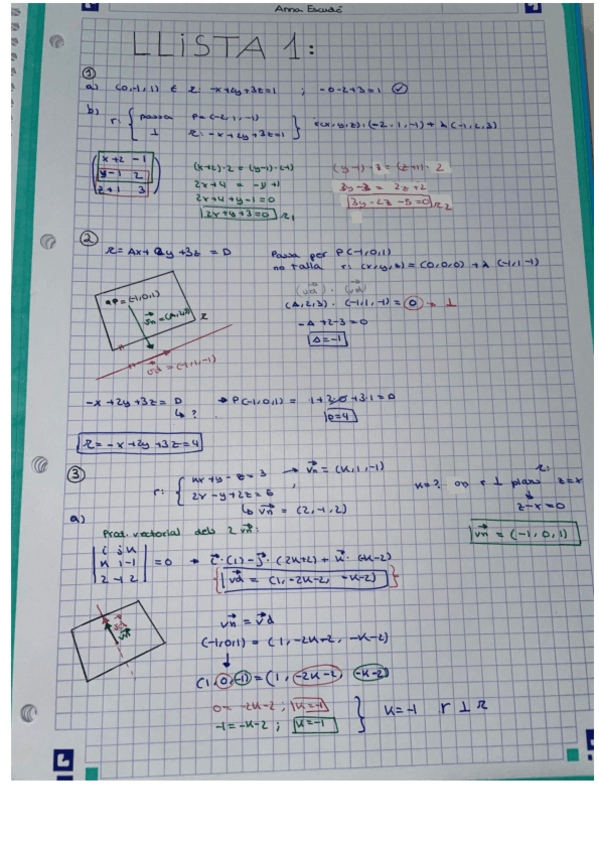 Anna Escudé
LLISTA 1:
①
a) (0,-1,1) ∈ π: -x+2y+3z=1 ; -0-2+3=1 ✓
b) r: { passa P=(-2,1,-1)
⊥ π: -x+2y+3z=1 } (x,y,z)=(-2,1,-1)+λ(-1,2,3)
x+2 -1
y-1 2
z+1 3
(x+2)·2 = (y-1)·(-1)
2x+4 = -y+1
2x+4+y-1=0
2x+y+3=0 π1
(y-1)·3 = (z+1)·2
3y-3 = 2z+2
3y-2z-5=0 π2
②
π=Ax+2y+3z=D
Passa per P(-1,0,1)
no talla r: (x,y,z)=(0,0,0)+λ(-1,1,-1)
P=(-1,0,1)
vn=(A,2,3)
π
vd=(-1,1,-1)
(vn)·(vd)
(A,2,3)·(-1,1,-1)=0 → ⊥
-A+2-3=0
A=-1
-x+2y+3z=D → P(-1,0,1) = 1+2·0+3·1=D
↳ ?
D=4
π=-x+2y+3z=4
③
r: { kx+y-z=3 → vn=(k,1,-1)
2x-y+2z=6
↳ vn=(2,-1,2)
k=? on r ⊥ plano z=x
π:
z-x=0
vn=(-1,0,1)
a)
Prod. vectorial dels 2 vn:
i j k
k 1 -1
2 -1 2
=0 → i·(1)-j·(2k+2)+k·(-k-2)
vd = (1,-2k-2,-k-2)
vd
vn
vn=vd
(-1,0,1)=(1,-2k-2,-k-2)
(1,0,-1)=(1,-2k-2,-k-2)
0=-2k-2; k=-1
-1=-k-2; k=-1
k=-1 r ⊥ π